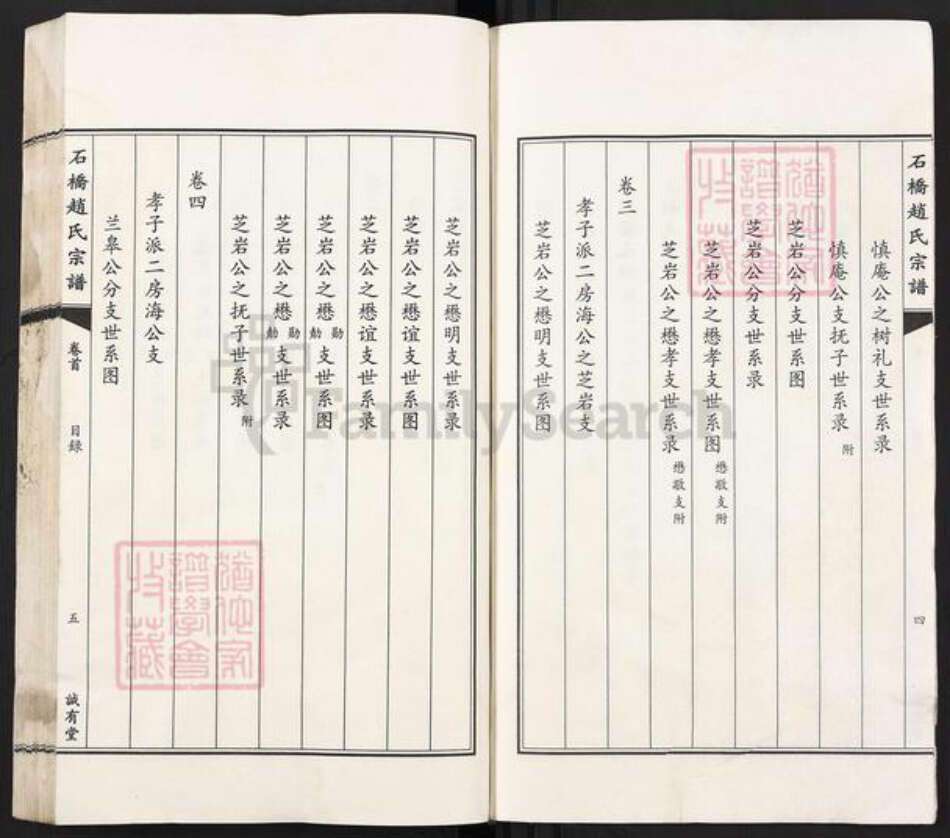 石橋趙氏宗譜
四
慎庵公之树礼支世系录
慎庵公支抚子世系录 附
芝岩公分支世系图
芝岩公分支世系录
芝岩公之懋孝支世系图 懋敬支附
芝岩公之懋孝支世系录 懋敬支附
卷三
孝子派二房海公之芝岩支
芝岩公之懋明支世系图
芝岩公之懋明支世系录
芝岩公之懋谊支世系图
芝岩公之懋谊支世系录
芝岩公之懋 支世系图
芝岩公之懋 支世系录
芝岩公之抚子世系录 附
卷四
孝子派二房海公支
兰皋公分支世系图
石橋趙氏宗譜
卷首
目録
五
誠有堂
FamilySearch